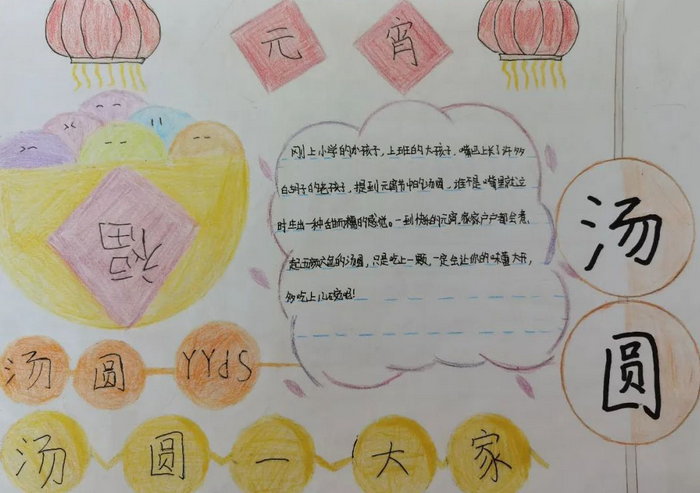 元宵
福
刚上小学的小孩子，上班的大孩子，嘴巴上长了许多
白胡子的老孩子，提到元宵节中的汤圆，谁不是嘴里就立
时生出一种甜而糯的感觉。一到热闹的元宵，家家户户都会煮
起五颜六色的汤圆，只是吃上一颗，一定会让你的味蕾大开，
多吃上几碗呢！
汤圆
汤圆YYdS
汤圆一大家